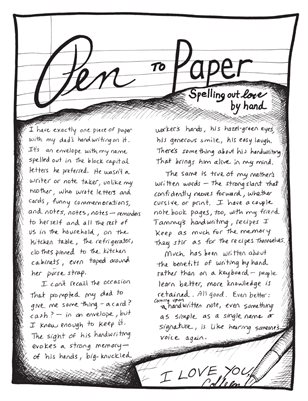 Pen to Paper
Spelling out love
by hand
I have exactly one piece of paper
with my dad's handwriting on it.
It's an envelope with my name
spelled out in the block capital
letters he preferred. He wasn't a
writer or note taker, unlike my
mother, who wrote letters and
cards, funny commemorations,
and notes, notes, notes — reminders
to herself and all the rest of
us in the household, on the
kitchen table, the refrigerator,
clothes pinned to the kitchen
cabinets, even taped around
her purse strap.
I can't recall the occasion
that prompted my dad to
give me some thing - a card?
cash? — in an envelope, but
I knew enough to keep it.
The sight of his handwriting
evokes a strong memory —
of his hands, big-knuckled
workers hands, his hazel-green eyes,
his generous smile, his easy laugh.
There's something about his handwriting
that brings him alive in my mind.
The same is true of my mother's
written words — the strong slant that
confidently moves forward, whether
cursive or print. I have a couple
note book pages, too, with my friend
Tammy's handwriting, recipes I
keep as much for the memory
they stir as for the recipes themselves.
Much has been written about
the benefits of writing by hand
rather than on a keyboard — people
learn better, more knowledge is
retained. All good. Even better:
coming upon
a handwritten note, even something
as simple as a single name or
signature, is like hearing someone's
voice again.
I LOVE YOU,
Colleen